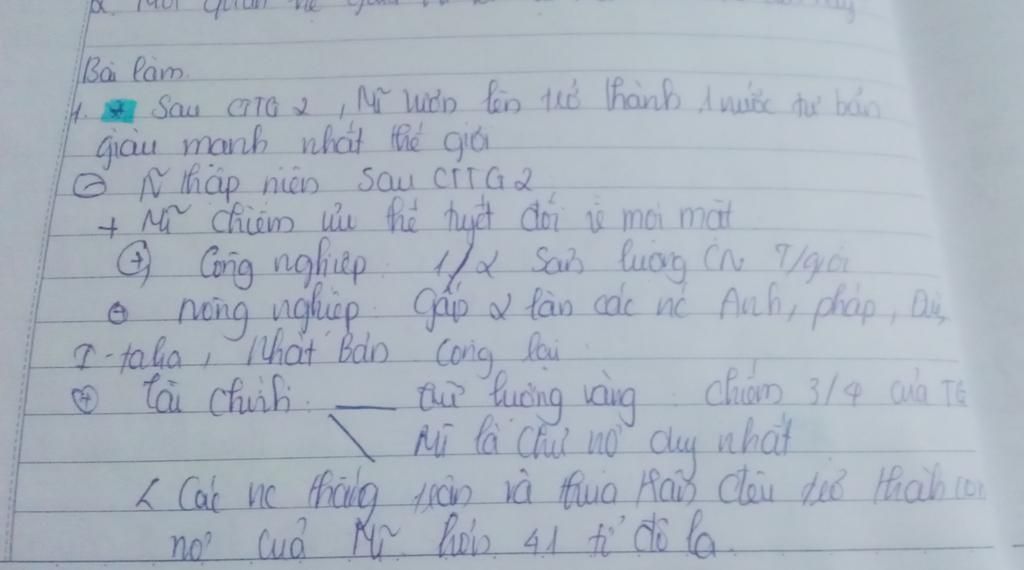 2. Mối quan hệ giữa
Bài làm.
1. * Sau CTTG 2, Mĩ vươn lên trở thành 1 nước tư bản
giàu mạnh nhất thế giới
N thập niên sau CTTG 2
+ Mĩ chiếm ưu thế tuyệt đối về mọi mặt
+) Công nghiệp: 1/2 sản lượng CN T/giới
Nông nghiệp: Gấp 2 lần các nc Anh, pháp, Đức,
I-talia, Nhật Bản cộng lại.
+ Tài chính: trữ lượng vàng: chiếm 3/4 của TG
Mĩ là chủ nợ duy nhất
< Các nc thắng trận và thua trận đều trở thành con
nợ của Mĩ hơn 41 tỉ đô la.